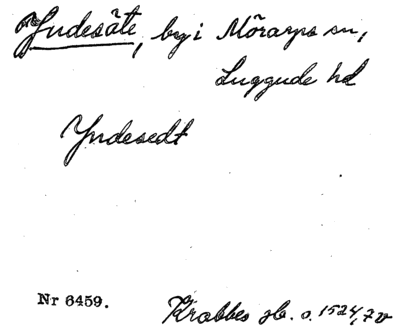 Yndesäte, by i Mörarps sn,
Luggude hd
Yndesedt
Nr 6459.
Krabbes jb. s. 1524,